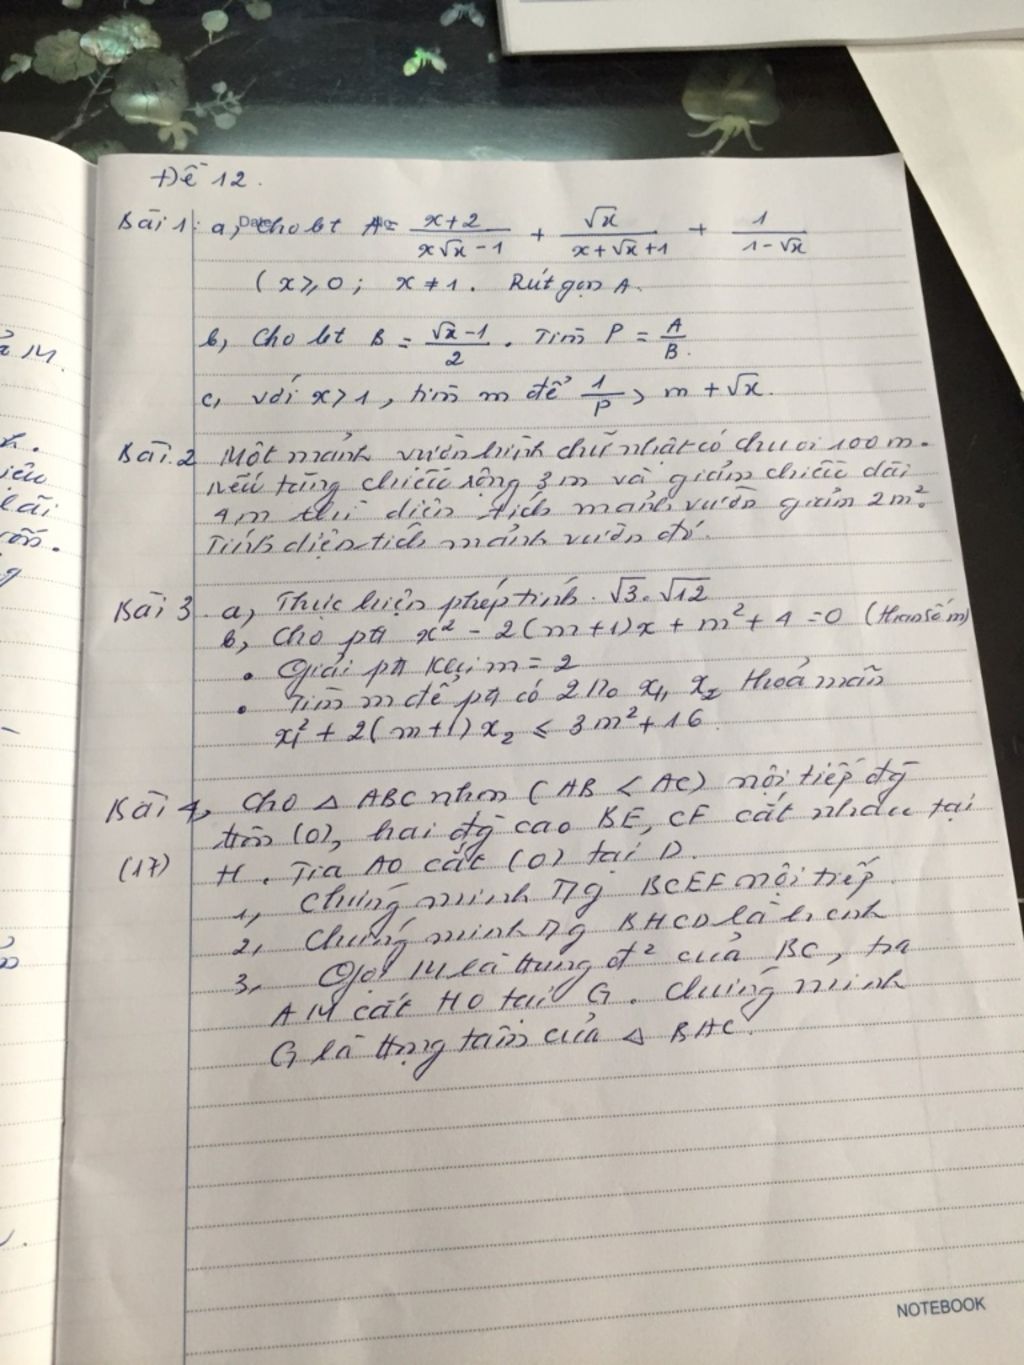 Đề 12.
Bài 1: a, Cho bt A = \frac{x+2}{x\sqrt{x}-1} + \frac{\sqrt{x}}{x+\sqrt{x}+1} + \frac{1}{1-\sqrt{x}}
(x ≥ 0; x ≠ 1. Rút gọn A.
b, Cho bt B = \frac{\sqrt{x}-1}{2}. Tìm P = \frac{A}{B}.
c, với x > 1, tìm m để \frac{1}{P} > m + \sqrt{x}.
Bài 2 Một mảnh vườn hình chữ nhật có chu vi 100 m.
Nếu tăng chiều rộng 3m và giảm chiều dài
4m thì diện tích mảnh vườn giảm 2m².
Tính diện tích mảnh vườn đó.
Bài 3 a, Thực hiện phép tính. √3.√12
b, Cho pt x² - 2(m+1)x + m² + 4 = 0 (tham số m)
• Giải pt khi m = 2
• Tìm m để pt có 2 no x₁, x₂ thoả mãn
x₁² + 2(m+1)x₂ ≤ 3m² + 16
Bài 4, Cho △ ABC nhọn (AB < AC) nội tiếp đg
tròn (O), hai đg cao BE, CF cắt nhau tại
(17) H. Tia AO cắt (O) tại D.
1, Chứng minh tg BCEF nội tiếp.
2, Chứng minh tg BHCD là h bh
3, Gọi M là trung đ² của BC, tia
AM cắt HO tại G. Chứng minh
G là trọng tâm của △ BAC.
NOTEBOOK